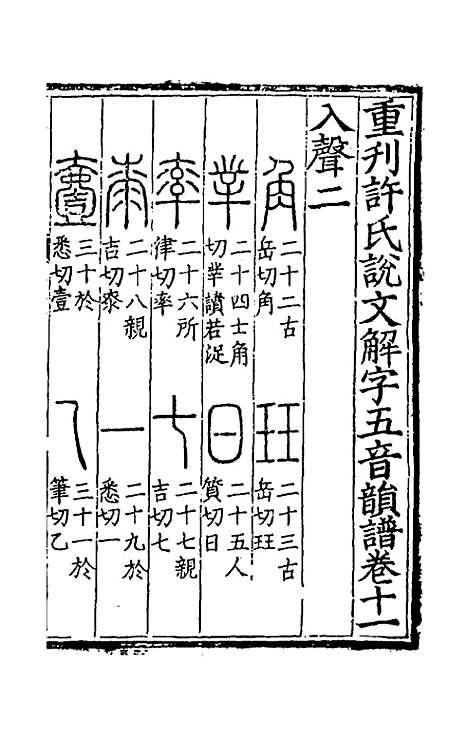 重刊許氏說文解字五音韻譜卷十一
入聲二
角
二十二古
岳切角
玨
二十三古
岳切玨
丵
二十四士角
切丵讀若浞
日
二十五人
質切日
率
二十六所
律切率
七
二十七親
吉切七
桼
二十八親
吉切桼
一
二十九於
悉切一
壹
三十於
悉切壹
乙
三十一於
筆切乙